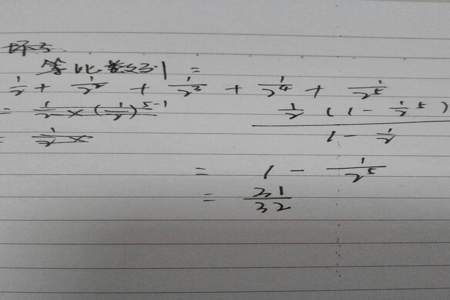 等比数列 1 =
1/2 + 1/2² + 1/2³ + 1/2⁴ + 1/2⁵
= 1/2 × (1/2)⁵⁻¹
= 1/2 ×
1/2 (1 - 1/2⁵) / 1 - 1/2
= 1 - 1/2⁵
= 31/32